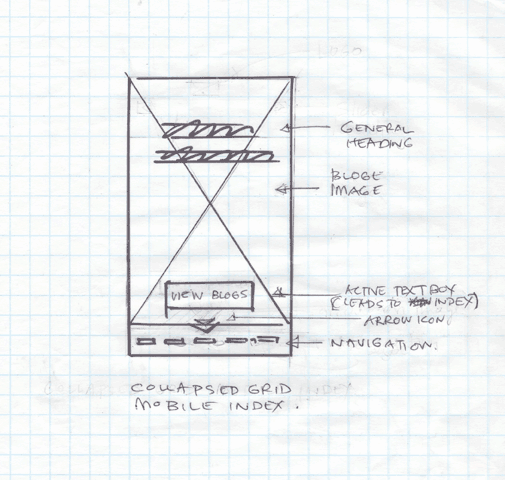 GENERAL
HEADING
BLOGE
IMAGE
VIEW BLOGS
ACTIVE TEXT BOX
(LEADS TO INDEX)
ARROW ICON.
NAVIGATION.
COLLAPSED GRID
MOBILE INDEX.